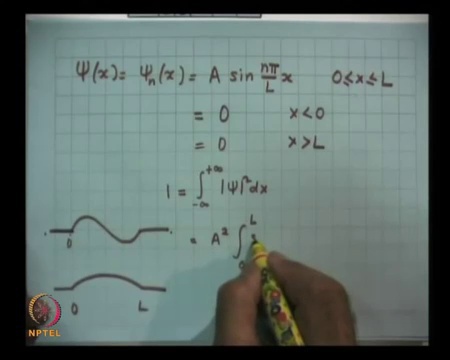 Ψ(x) = Ψₙ(x) = A sin nπ/L x 0 ≤ x ≤ L
= 0 x < 0
= 0 x > L
1 = ∫₋∞⁺∞ |Ψ|² dx
= A² ∫₀ᴸ
0
0 L
NPTEL